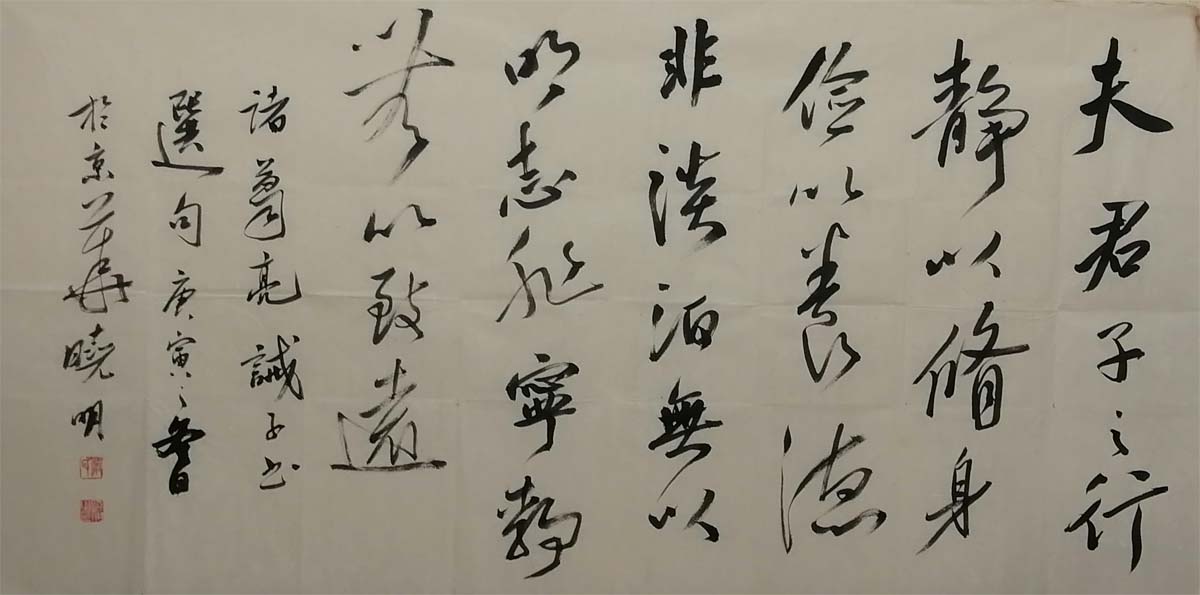 夫君子之行
靜以脩身
儉以養德
非淡泊無以
明志非寧靜
無以致遠
諸葛亮誡子書
選句庚寅之春
於京華曉明